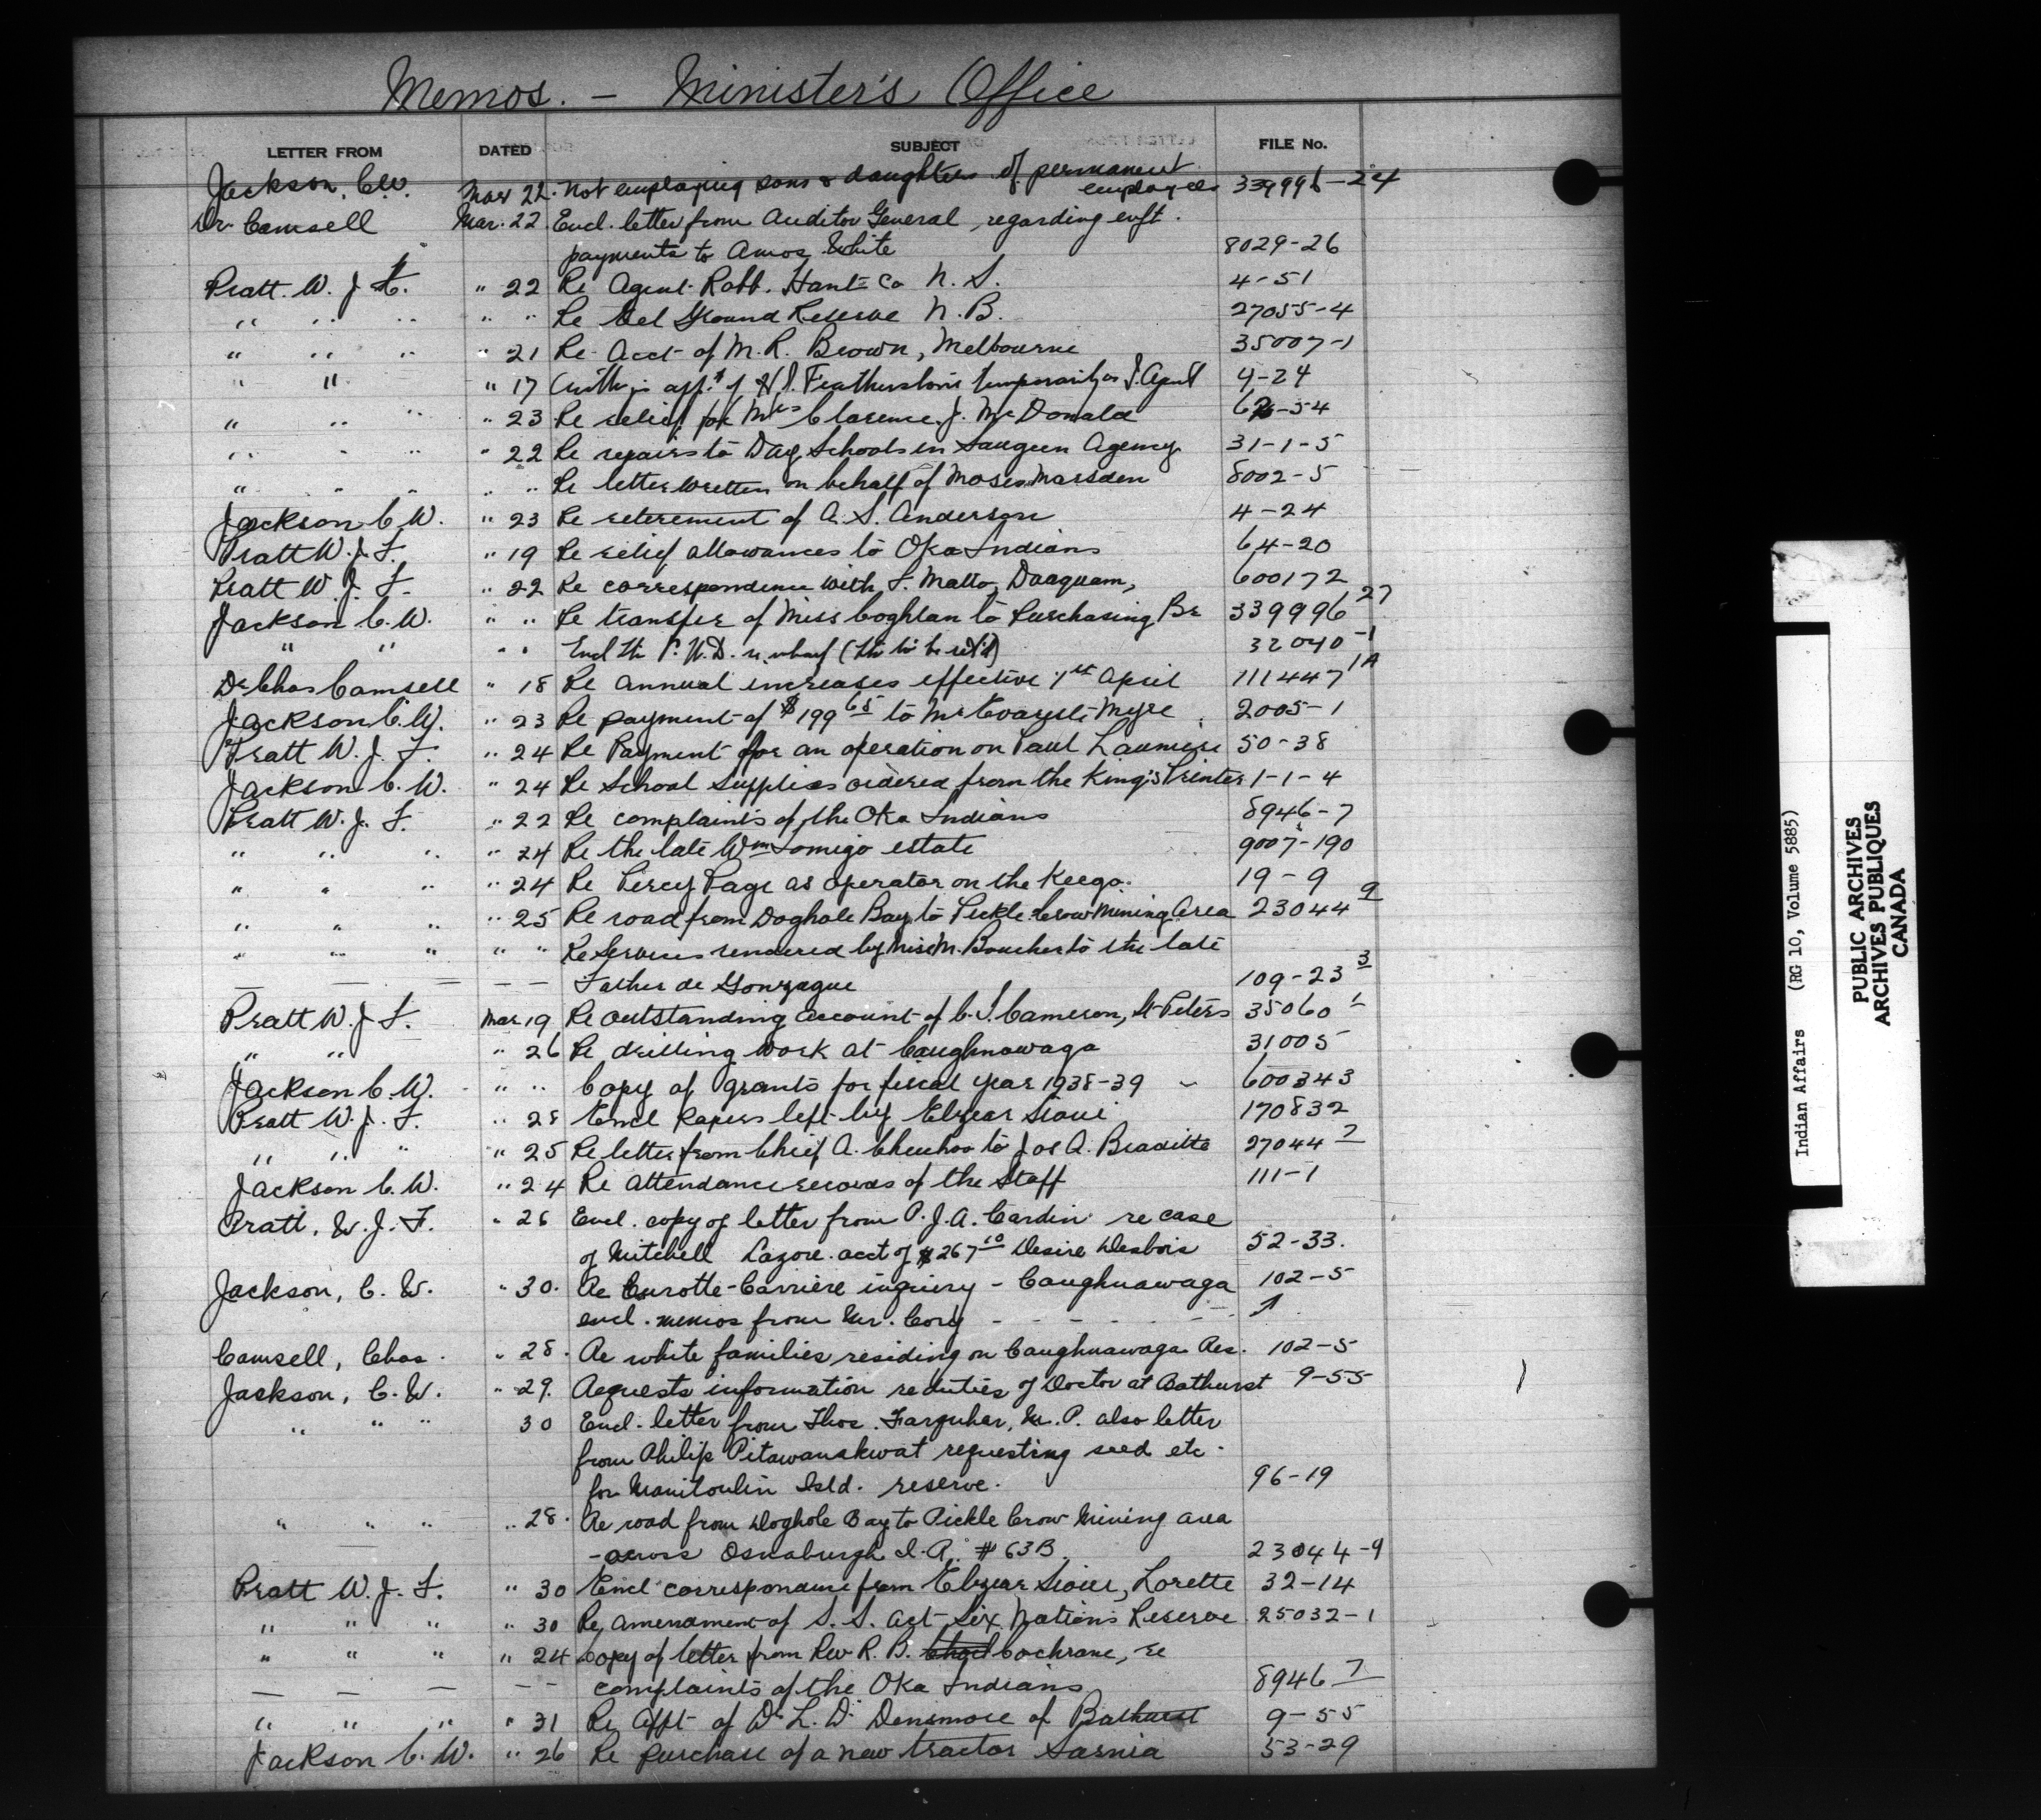 Memos. – Minister's Office
LETTER FROM DATED SUBJECT FILE No.
Jackson, C.W. Mar 22. Not employing sons & daughters of permanent
employees 339996-24
Dr Camsell Mar. 22 Encl. letter from Auditor General, regarding
payments to Amos White 8029-26
Pratt. W. J. F. " 22 Re Agent Robb. Hants Co N. S. 4-51
" " " " " Re Eel Ground Reserve N. B. 27055-4
" " " " 21 Re Acct of M. R. Brown, Melbourne 35007-1
" " " 17 app't of Featherston temporarily as 4-24
" " " 23 Re relief for Mrs Clarence J. McDonald -54
" " " " 22 Re repairs to Day Schools in Saugeen Agency 31-1-5
" " " " " Re letter written on behalf of Moses Marsden 8002-5
Jackson C. W. " 23 Re retirement of A. S. Anderson 4-24
Pratt W. J. F. " 19 Re relief allowances to Oka Indians 64-20
Pratt W. J. F. " 22 Re correspondence with Daaquam, 600172
Jackson C. W. " " Re transfer of Miss Coghlan to Purchasing Br 339996 27
" " " " Encl P.W.D. re wharf 32040-1
Dr Chas Camsell " 18 Re annual increases effective 1st April 111447 1A
Jackson C. W. " 23 Re payment of $199 65 to Mr Myre 2005-1
Pratt W. J. F. " 24 Re Payment for an operation on Paul 50-38
Jackson C. W. " 24 Re School Supplies ordered from the King's Printer 1-1-4
Pratt W. J. F. " 22 Re complaints of the Oka Indians 8946-7
" " " " 24 Re the late Wm estate 9007-190
" " " " 24 Re Percy Page as operator on the Keego. 19-9
" " " " 25 Re road from Doghole Bay to Pickle Crow Mining Area 23044 9
" " " " " Re Services rendered by Miss M. Boucher to the late
— — — — — Father de Gonzague 109-23 3
Pratt W. J. F. Mar 19 Re outstanding account of C. J. Cameron, St Peters 35060 1
" " " 26 Re drilling work at Caughnawaga 31005
Jackson C. W. " " Copy of grants for fiscal year 1938-39 600343
Pratt W. J. F. " 28 Encl Papers left by Elzear Sioui 170832
" " " " 25 Re letter from Chief A. to Jos A. 27044 7
Jackson C. W. " 24 Re attendance records of the Staff 111-1
Pratt, W. J. F. " 26 Encl. copy of letter from P. J. A. Cardin re case
of Mitchell Lazore. acct of $267 10 Desire Desbois 52-33.
Jackson, C. W. " 30. Re Curotte-Carriere inquiry – Caughnawaga 102-5
encl. memos from Mr. Cory - - - - - -
Camsell, Chas. " 28. Re white families residing on Caughnawaga Res. 102-5
Jackson, C. W. " 29. Requests information re duties of Doctor at Bathurst 9-55
" " " 30 Encl. letter from Thos. Farquhar, M. P. also letter
from Philip Pitawanakwat requesting seed etc.
for Manitoulin Isld. reserve. 96-19
" " " " 28. Re road from Doghole Bay to Pickle Crow Mining area
- across Osnaburgh I. R. #63B 23044-9
Pratt W. J. F. " 30 Encl correspondence from Elzear Sioui, Lorette 32-14
" " " " 30 Re amendment of S. S. act – Six Nations Reserve 25032-1
" " " " 24 Copy of letter from Rev R. B. Cochrane, re
— — — - - complaints of the Oka Indians 8946 7
" " " " 31 Re appt of Dr L. D. Densmore of Bathurst 9-55
Jackson C. W. " 26 Re purchase of a new tractor Sarnia 53-29
Indian Affairs (RG 10, Volume 5885)
PUBLIC ARCHIVES
ARCHIVES PUBLIQUES
CANADA